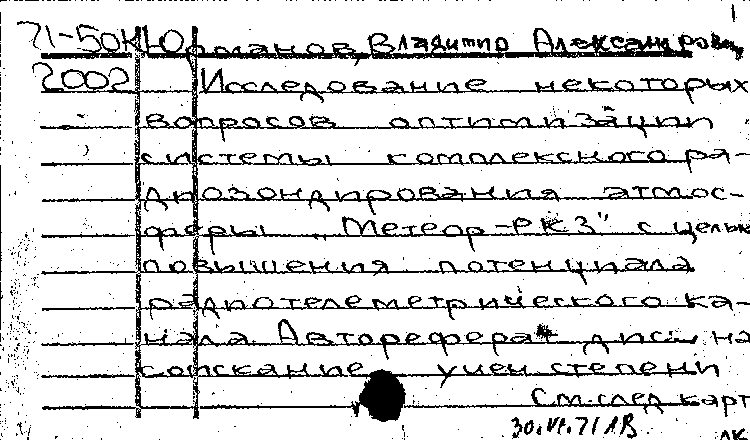 71-50К Юрманов, Владимир Александрович
2002 Исследование некоторых
вопросов оптимизации
системы комплексного ра-
диозондирования атмос-
феры "Метеор-РКЗ" с целью
повышения потенциала
радиотелеметрического ка-
нала. Автореферат дисс. на
соискание учен. степени
См. след карт
30.VI.71 ЛВ